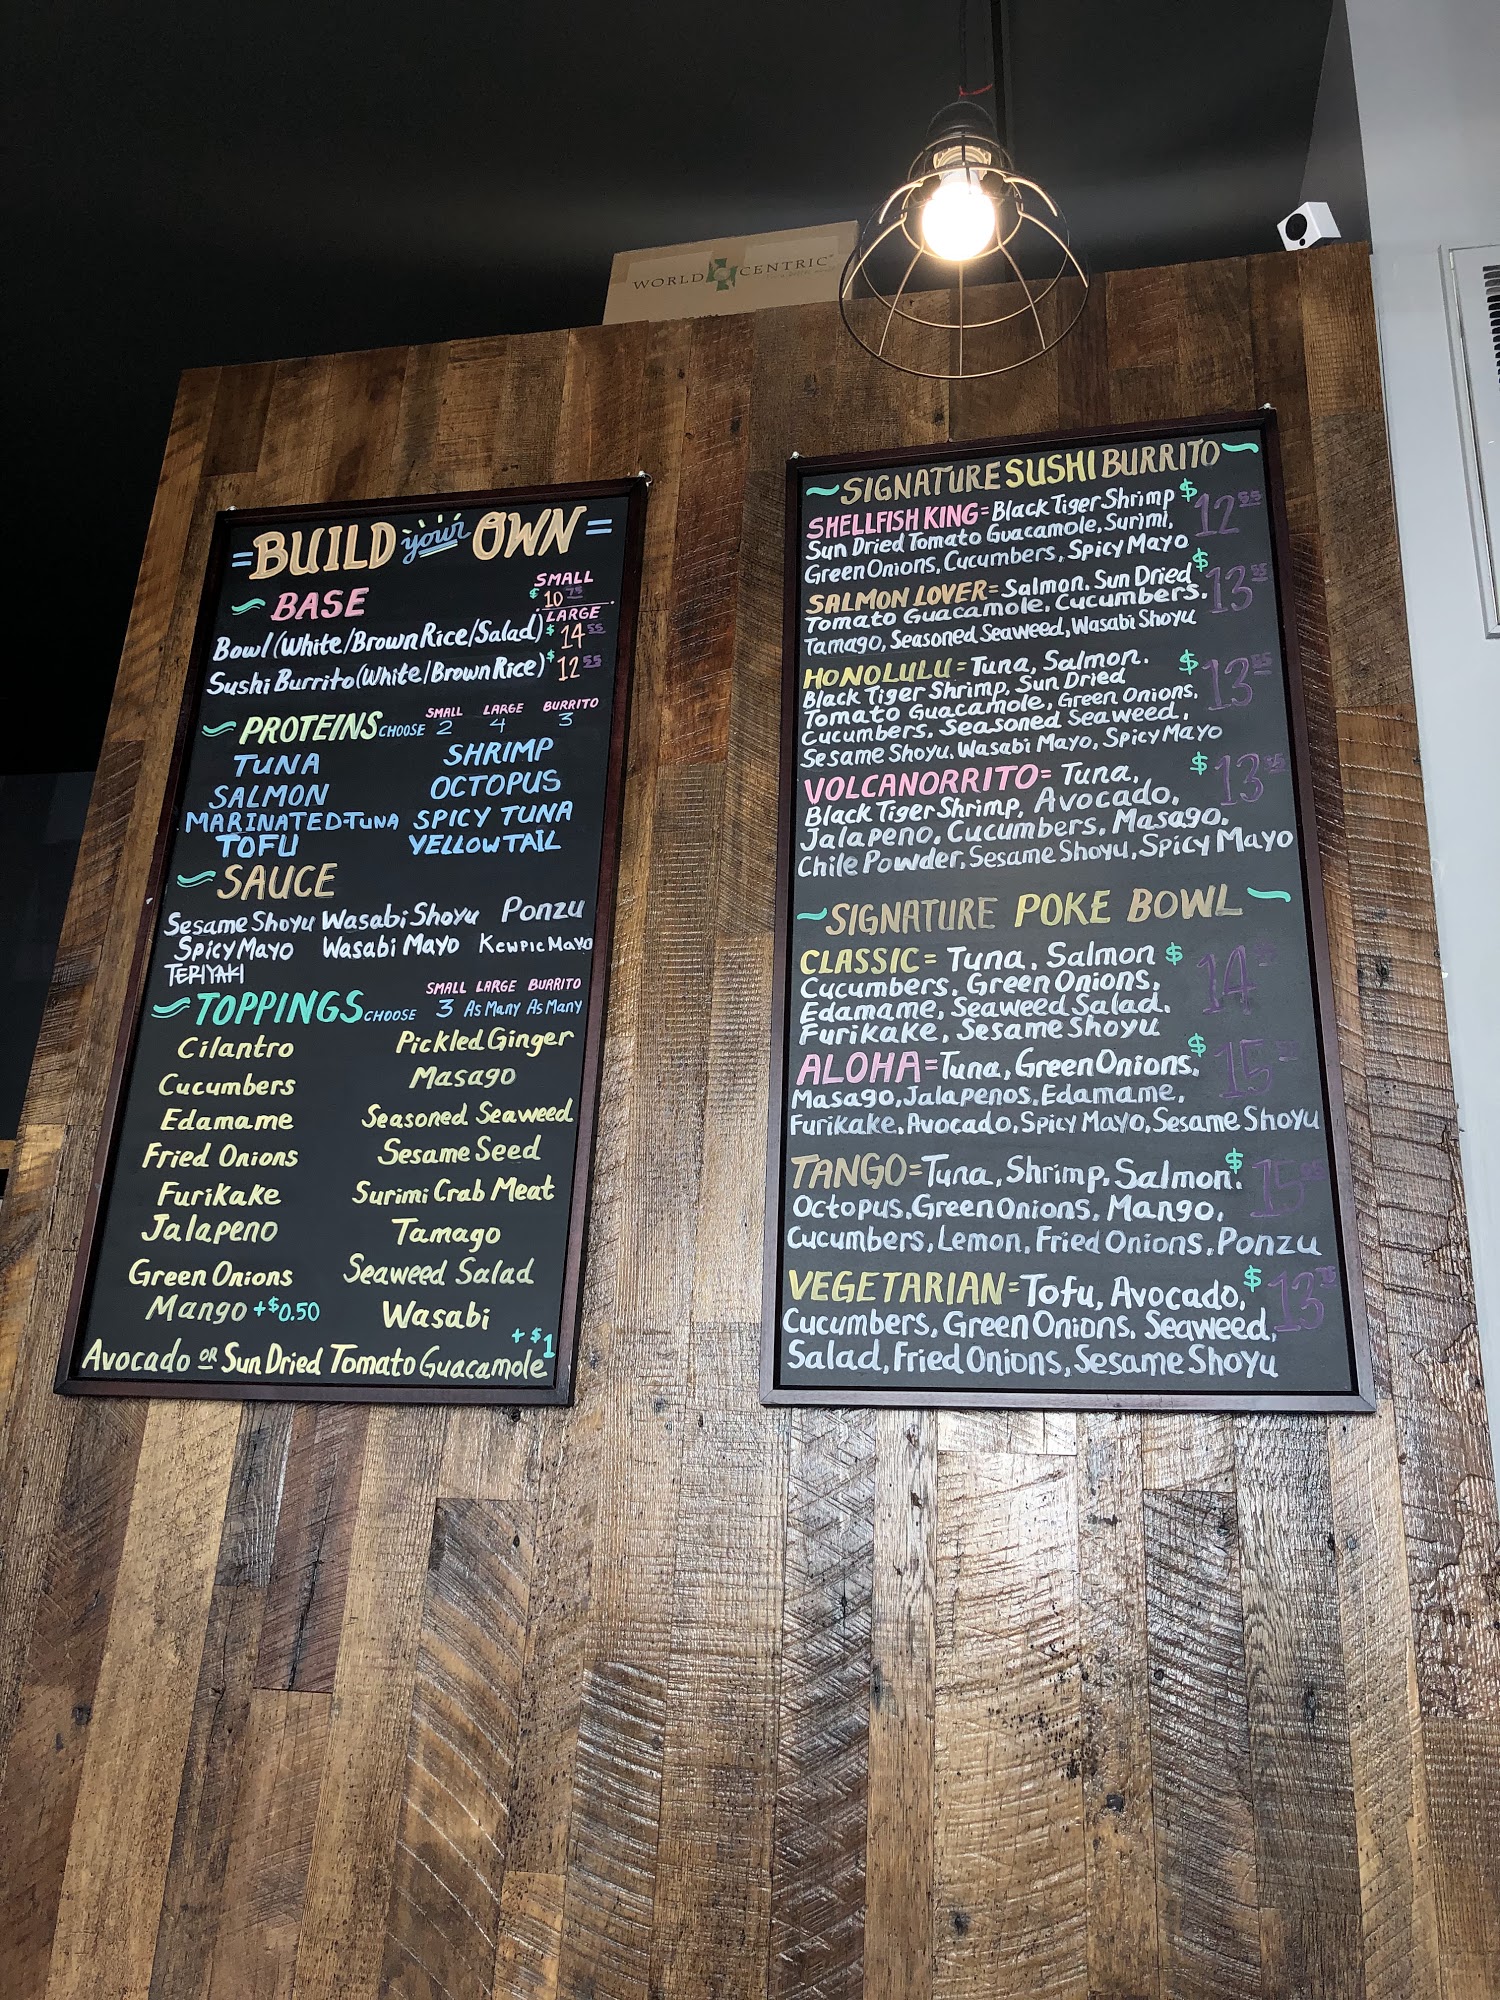 WORLD CENTRIC
=BUILD your OWN=
BASE
SMALL
$10.75
LARGE
Bowl (White/Brown Rice/Salad) $14.55
Sushi Burrito (White/Brown Rice) $12.55
PROTEINS CHOOSE SMALL 2 LARGE 4 BURRITO 3
TUNA SHRIMP
SALMON OCTOPUS
MARINATED-TUNA SPICY TUNA
TOFU YELLOWTAIL
SAUCE
Sesame Shoyu Wasabi Shoyu Ponzu
Spicy Mayo Wasabi Mayo Kewpie Mayo
TERIYAKI
TOPPINGS CHOOSE SMALL 3 LARGE As Many BURRITO As Many
Cilantro Pickled Ginger
Cucumbers Masago
Edamame Seasoned Seaweed
Fried Onions Sesame Seed
Furikake Surimi Crab Meat
Jalapeno Tamago
Green Onions Seaweed Salad
Mango +$0.50 Wasabi
Avocado OR Sun Dried Tomato Guacamole +$1
~SIGNATURE SUSHI BURRITO~
SHELLFISH KING= Black Tiger Shrimp $12.55
Sun Dried Tomato Guacamole, Surimi,
Green Onions, Cucumbers, Spicy Mayo
SALMON LOVER= Salmon. Sun Dried $13.55
Tomato Guacamole, Cucumbers.
Tamago, Seasoned Seaweed, Wasabi Shoyu
HONOLULU= Tuna, Salmon. $13.55
Black Tiger Shrimp, Sun Dried
Tomato Guacamole, Green Onions,
Cucumbers, Seasoned Seaweed,
Sesame Shoyu, Wasabi Mayo, Spicy Mayo
VOLCANORRITO= Tuna, $13.55
Black Tiger Shrimp, Avocado,
Jalapeno, Cucumbers, Masago.
Chile Powder, Sesame Shoyu, Spicy Mayo
~SIGNATURE POKE BOWL~
CLASSIC= Tuna, Salmon $14
Cucumbers, Green Onions,
Edamame, Seaweed Salad.
Furikake, Sesame Shoyu
ALOHA=Tuna, Green Onions, $15
Masago, Jalapenos, Edamame,
Furikake, Avocado, Spicy Mayo, Sesame Shoyu
TANGO=Tuna, Shrimp, Salmon. $15
Octopus, Green Onions, Mango,
Cucumbers, Lemon, Fried Onions, Ponzu
VEGETARIAN=Tofu, Avocado, $13
Cucumbers, Green Onions, Seaweed,
Salad, Fried Onions, Sesame Shoyu